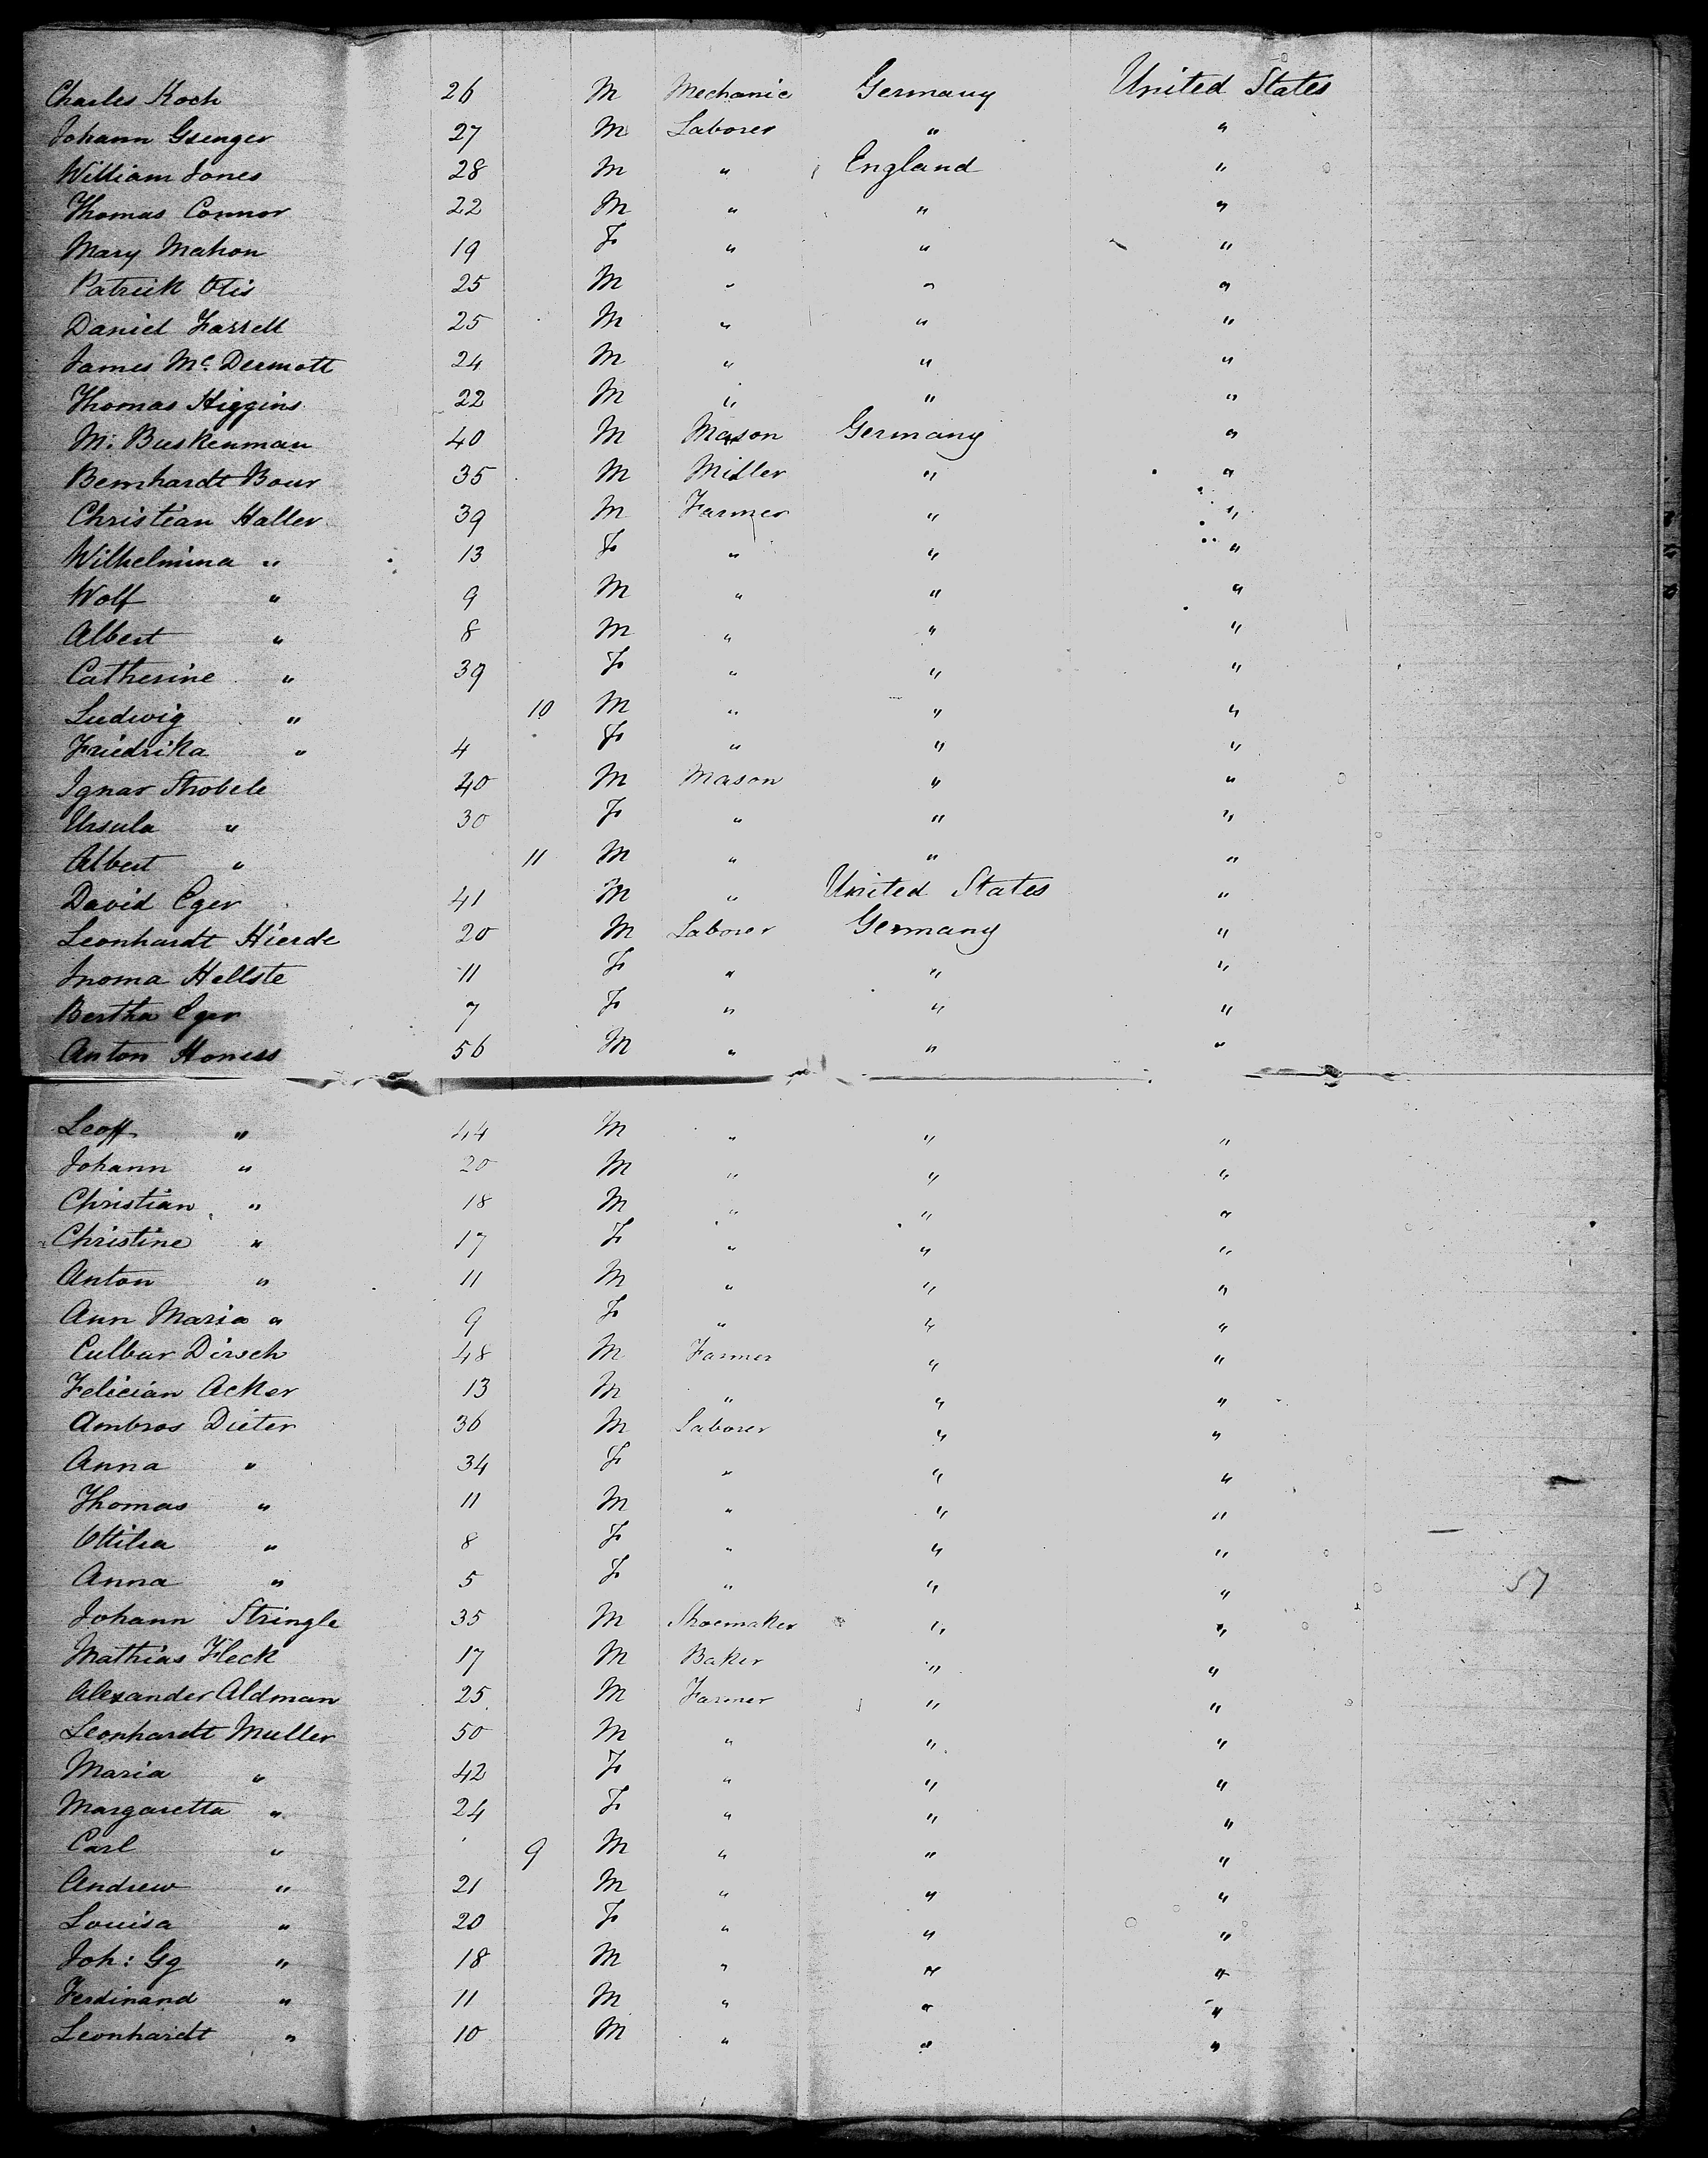 Charles Koch 26 M Mechanic Germany United States
Johann Gsenger 27 M Laborer " "
William Jones 28 M " England "
Thomas Connor 22 M " " "
Mary Mahon 19 F " " "
Patrick Otis 25 M " " "
Daniel Farrell 25 M " " "
James Mc. Dermott 24 M " " "
Thomas Higgins 22 M " " "
M: Buskenman 40 M Mason Germany "
Bernhardt Bour 35 M Miller " "
Christian Haller 39 M Farmer " "
Wilhelmina " 13 F " " "
Wolf " 9 M " " "
Albert " 8 M " " "
Catherine " 39 F " " "
Ludwig " 10 M " " "
Friedrika " 4 F " " "
Ignar Strobele 40 M Mason " "
Ursula " 30 F " " "
Albert " 11 M " " "
David Eger 41 M " United States "
Leonhardt Hierde 20 M Laborer Germany "
Inoma Hellste 11 F " " "
Bertha Eger 7 F " " "
Anton Honess 56 M " " "
Leoff " 44 M " " "
Johann " 20 M " " "
Christian " 18 M " " "
Christine " 17 F " " "
Anton " 11 M " " "
Ann Maria " 9 F " " "
Culbar Dirsch 48 M Farmer " "
Felician Acker 13 M " " "
Ambros Dieter 36 M Laborer " "
Anna " 34 F " " "
Thomas " 11 M " " "
Ottilia " 8 F " " "
Anna " 5 F " " " 57
Johann Stringle 35 M Shoemaker " "
Mathias Fleck 17 M Baker " "
Alexander Aldman 25 M Farmer " "
Leonhardt Muller 50 M " " "
Maria " 42 F " " "
Margaretta " 24 F " " "
Carl " 9 M " " "
Andrew " 21 M " " "
Louisa " 20 F " " "
Joh: Gg " 18 M " " "
Ferdinand " 11 M " " "
Leonhardt " 10 M " " "